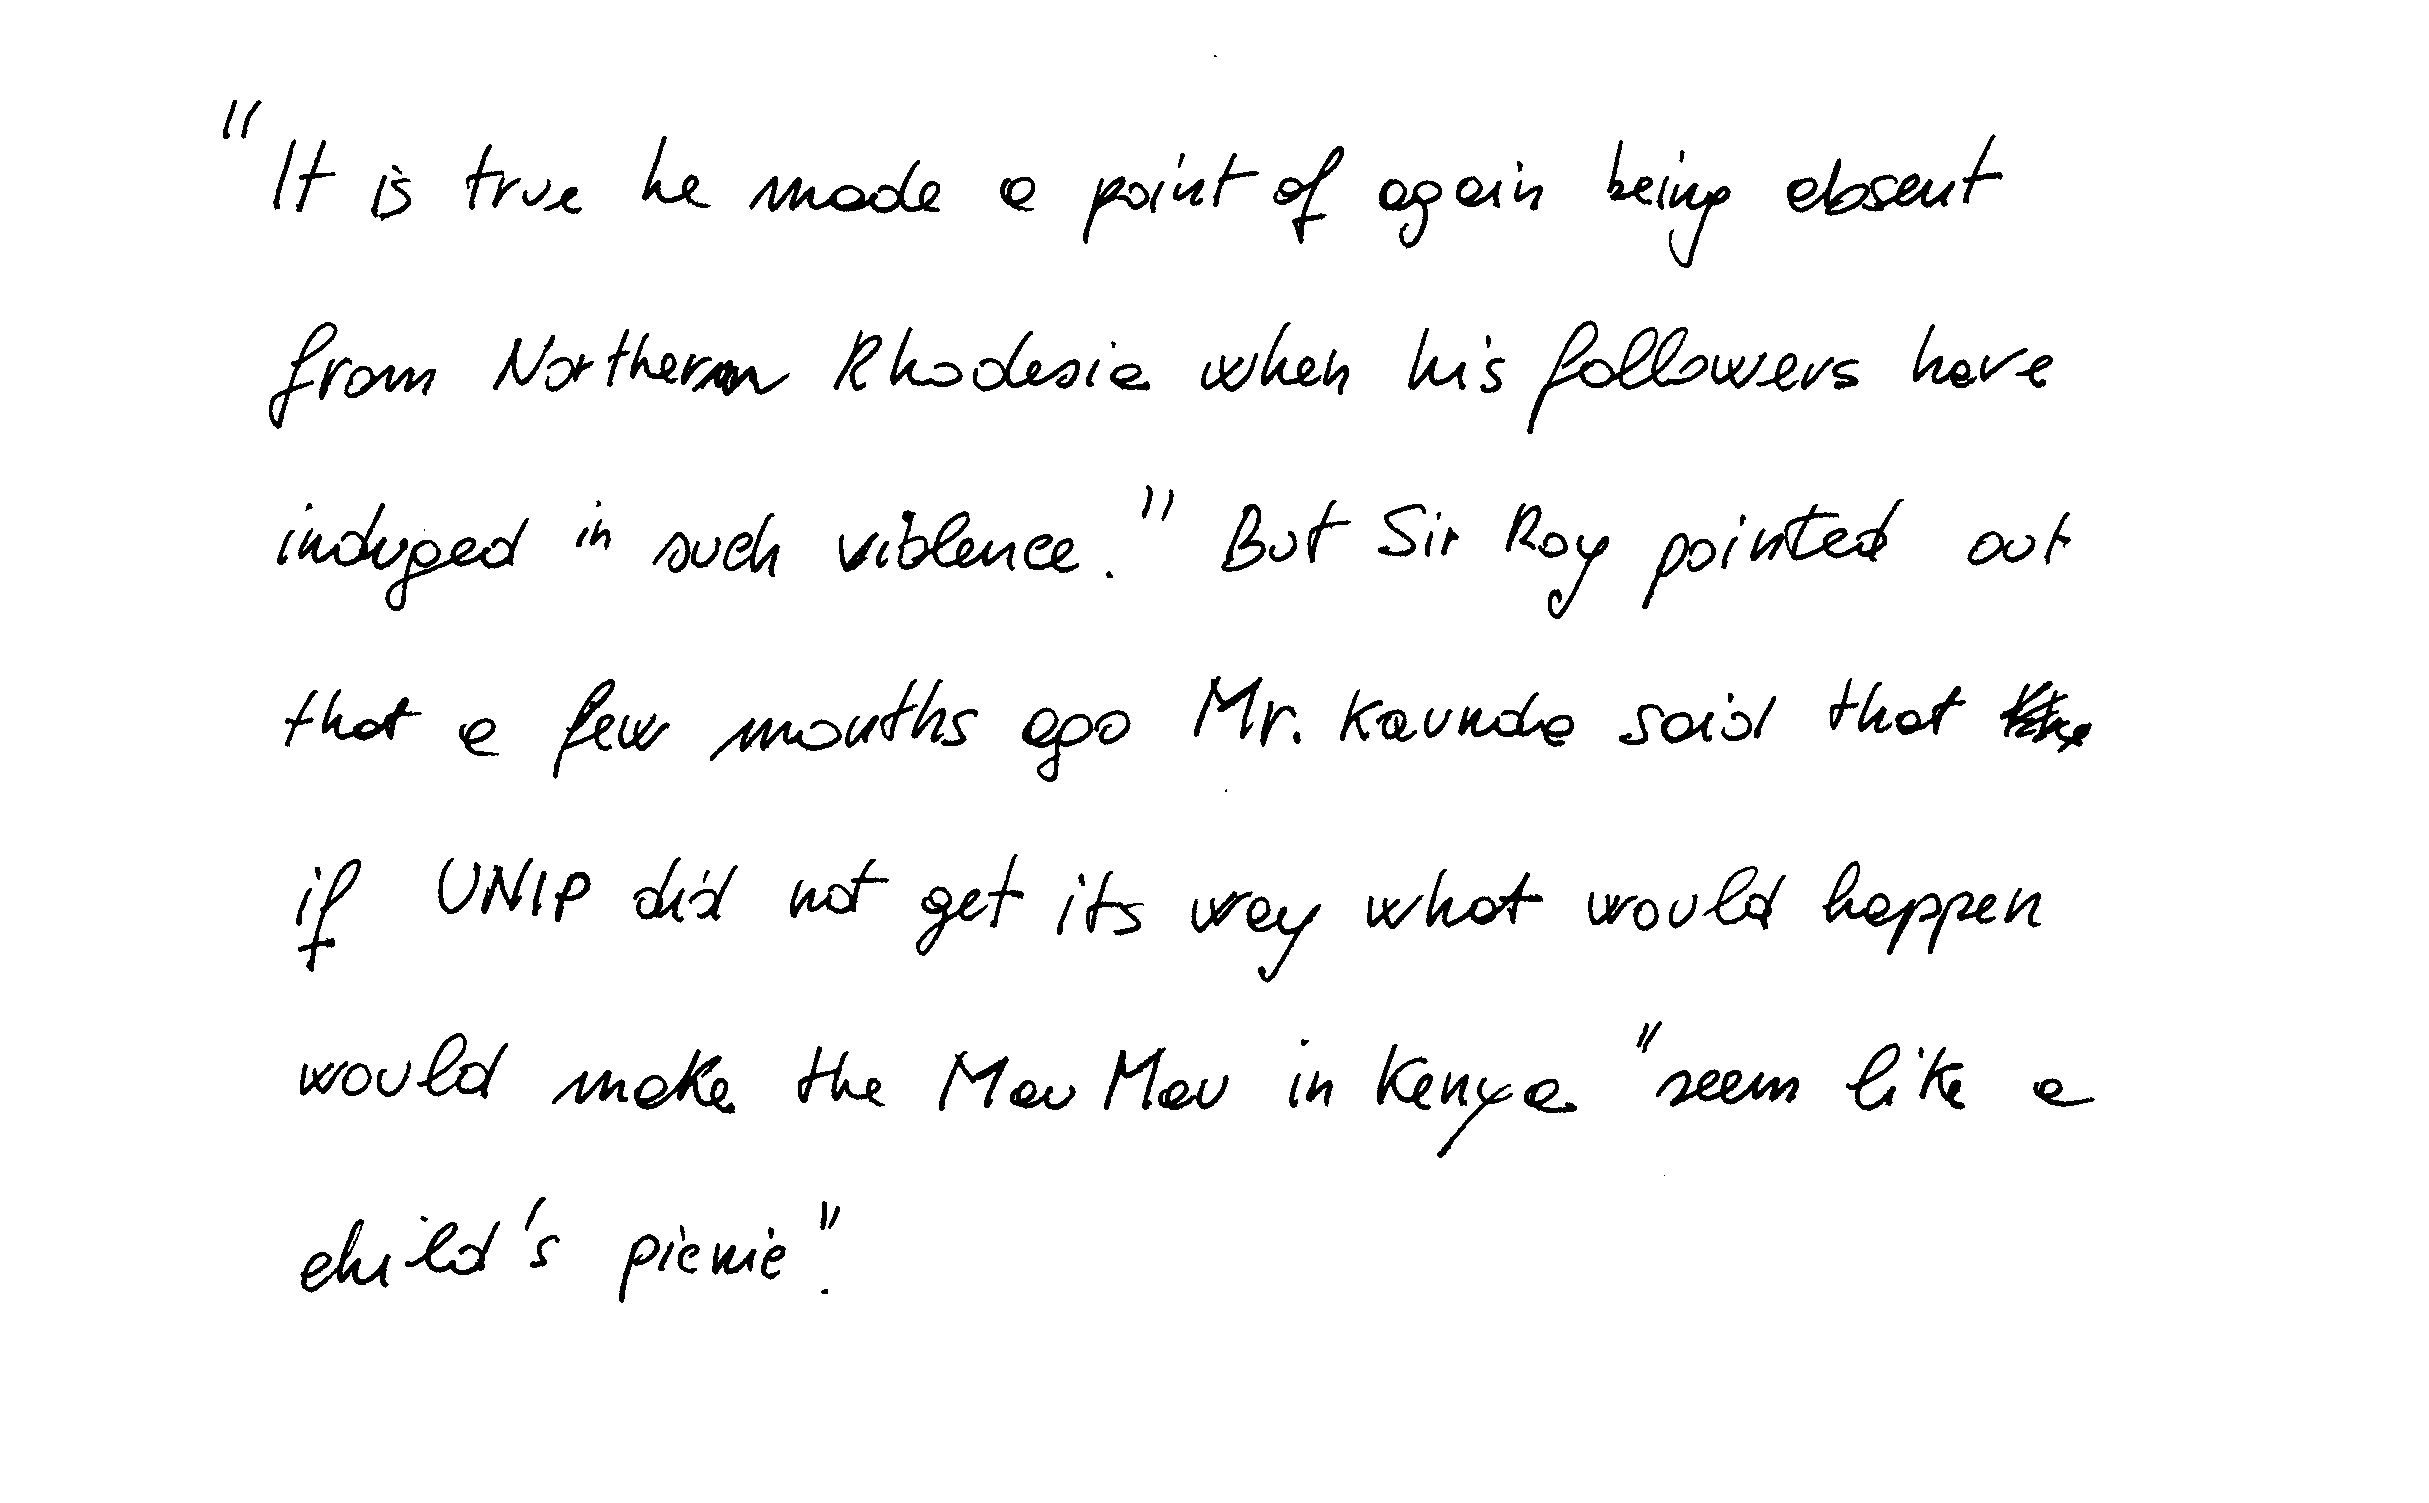 "It is true he made a point of again being absent
from Northern Rhodesia when his followers have
induged in such violence." But Sir Roy pointed out
that a few months ago Mr. Kaunda said that
if UNIP did not get its way what would happen
would make the Mau Mau in Kenya "seem like a
child's picnic".